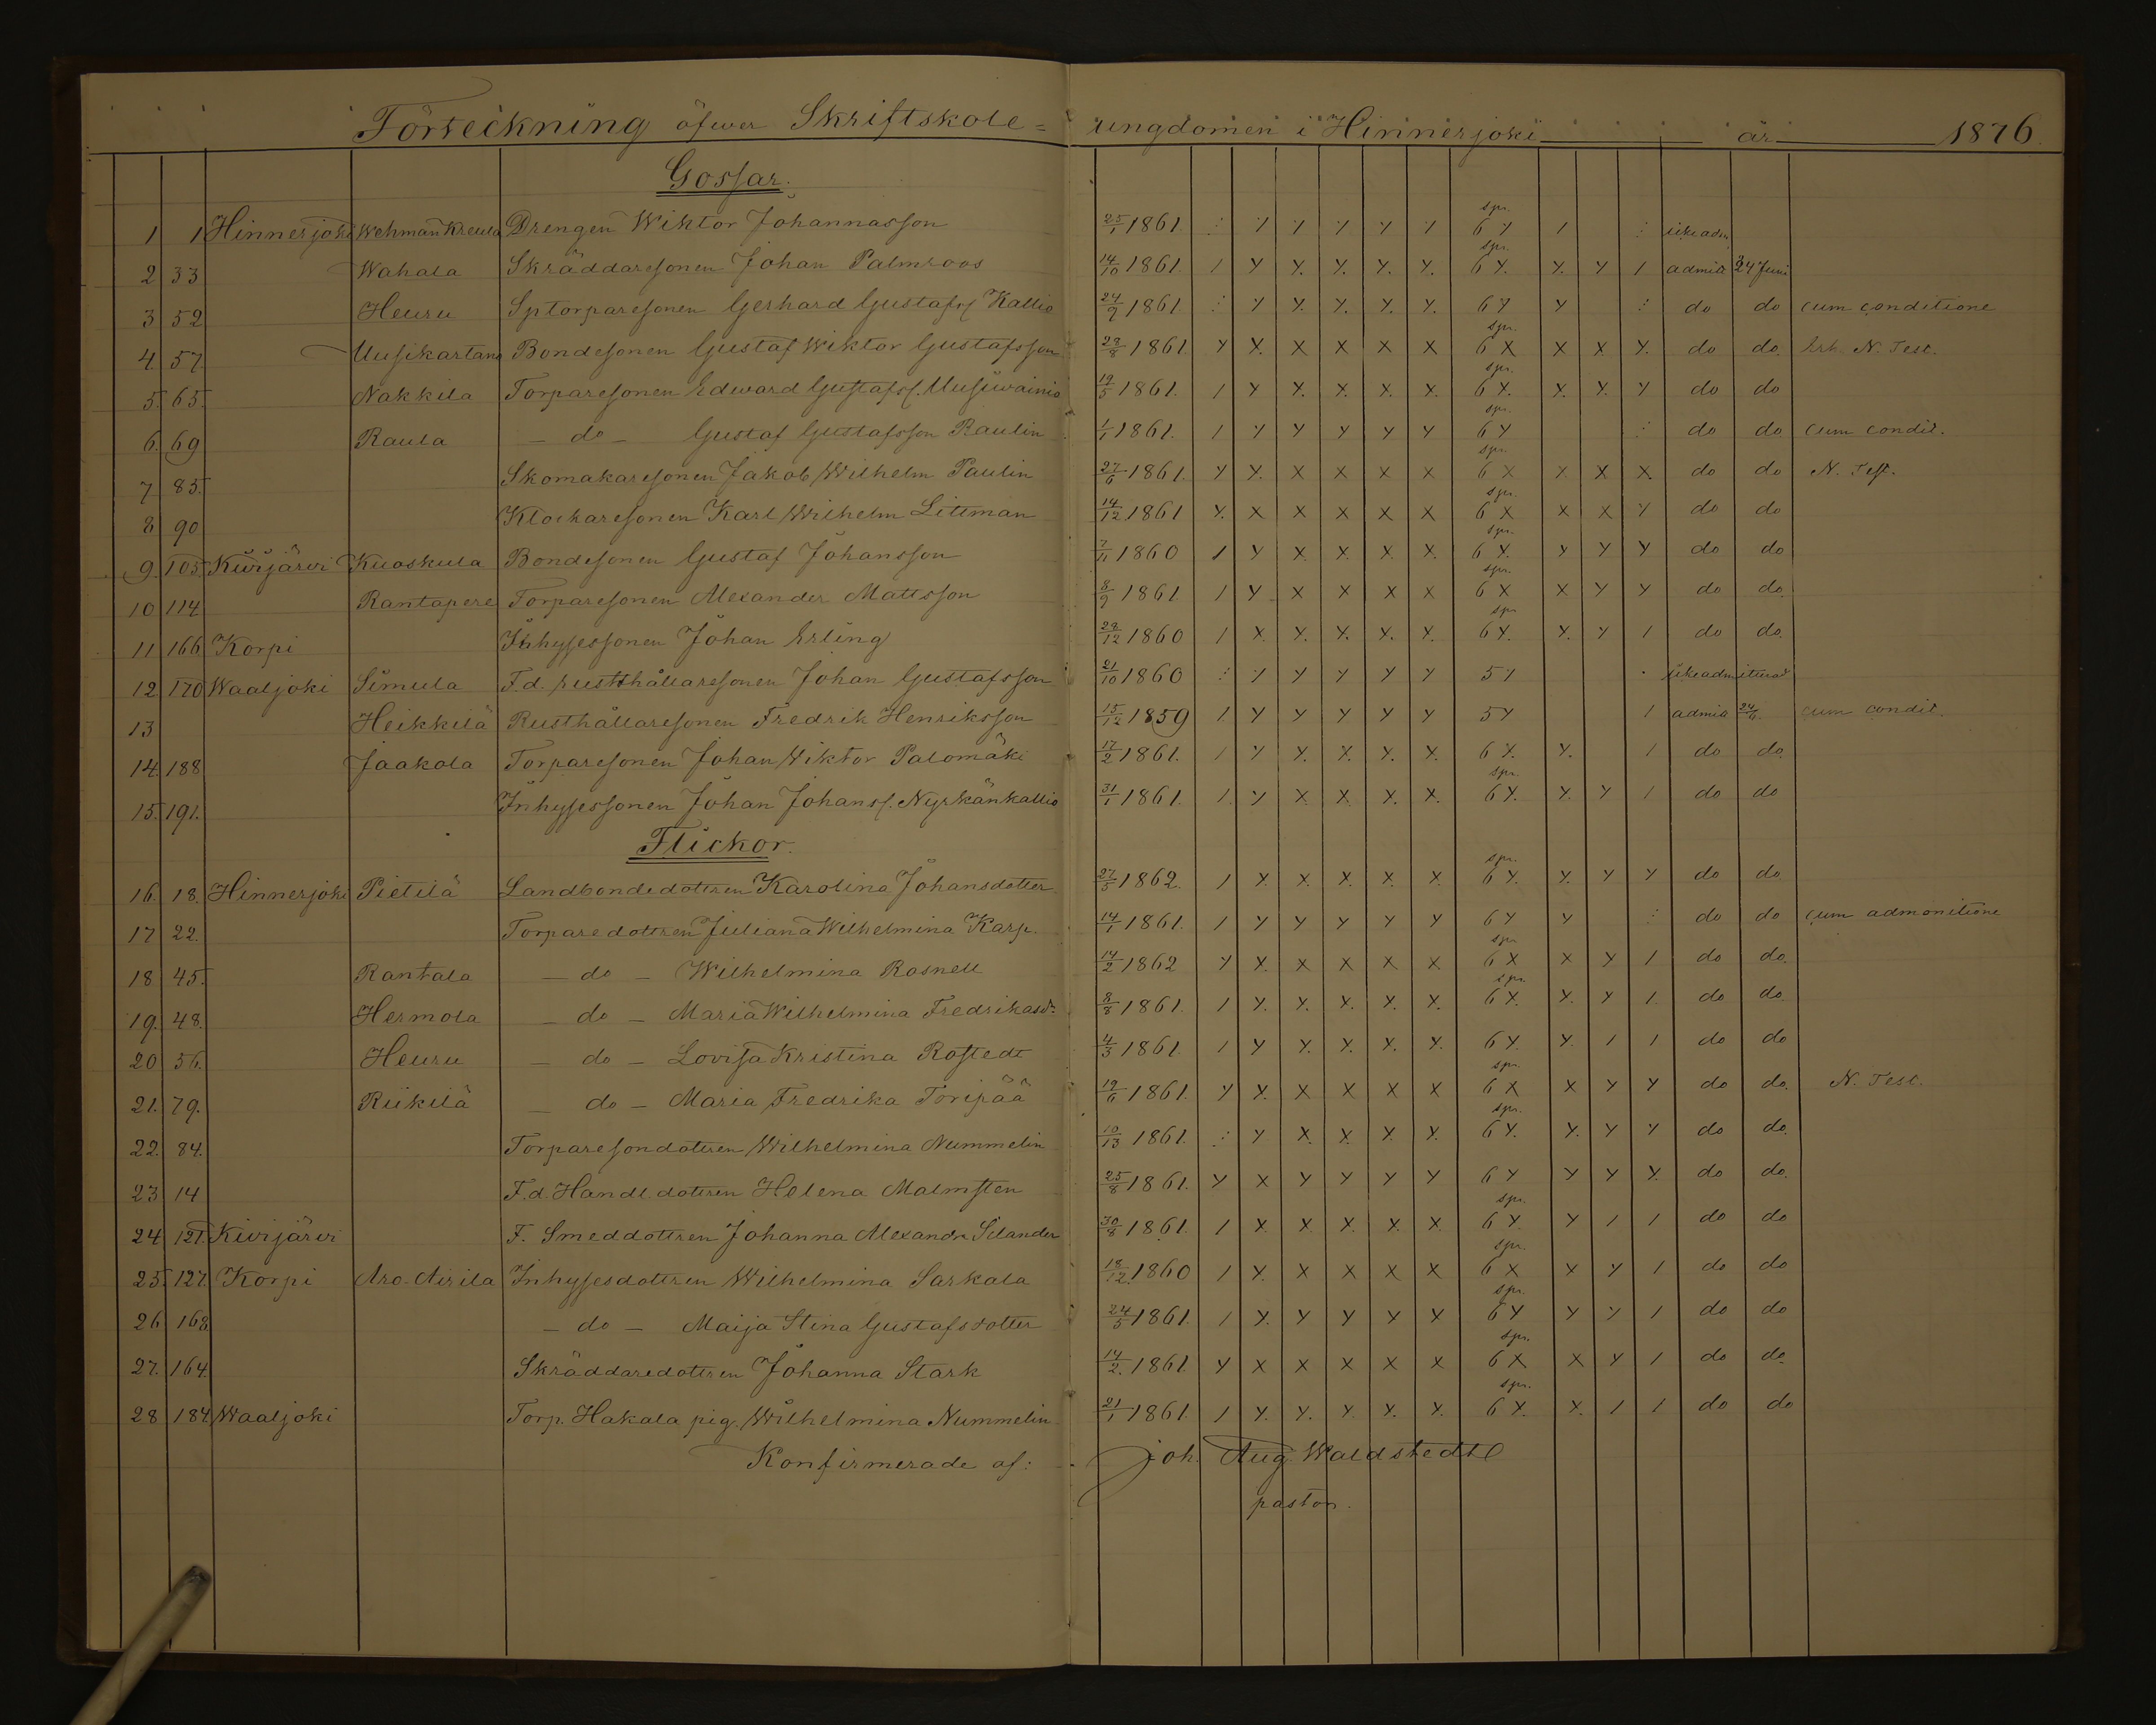 Förteckning öfwer Skriftskole= ungdomen i Hinnerjoki år 1876.
Gossar.
1 1 Hinnerjoki Wehman Kreula Drengen Wiktor Johannasson 25/1 1861. : y y y y y spr. 6 y / : icke adm.
2 33 Wahala Skräddaresonen Johan Palmroos 14/10 1861. / y y. y. y. y. spr. 6 y. y. y / admit 24 Juni
3 52 Heuru Sptorparesonen Gerhard Gustafss. Kallio 24/9 1861. : y y. y. y. y. 6 y y : do do cum conditione
4. 57. Uusikartano Bondesonen Gustaf Wiktor Gustafsson 28/8 1861 y y. x x x x spr. 6 x x x y. do do. Erh. N. Test.
5. 65. Nakkila Torparesonen Edward Gustafss. Uusiwainio 19/5 1861. / y y. x. x. x. spr. 6 y. y. y. y do do
6. 69 Raula — do — Gustaf Gustafsson Raulin 1/1 1861. / y y y y y spr. 6 y : do do cum condit.
7 85. Skomakaresonen Jakob Wilhelm Paulin 27/6 1861. y y. x x x x spr. 6 x x x x. do do N. Test.
8 90 Klockaresonen Karl Wilhelm Littman 14/12 1861 y. x x x x x spr. 6 x x x y do do
9. 105. Kiwijärwi Kuoskula Bondesonen Gustaf Johansson 7/11 1860 / y x. x. x. x. spr. 6 y. y y y do do
10 114 Rantapere Torparesonen Alexander Mattsson 8/9 1861. / y x x x x spr. 6 x x y y do do.
11 166 Korpi Inhysessonen Johan Erling 28/12 1860 / x. y. y. y. y. spr 6 y. y. y / do do.
12. 170 Waaljoki Simula F.d. rusthållaresonen Johan Gustafsson 21/10 1860 : y y y y y 5 y . icke admitterad
13 Heikkilä Rusthållaresonen Fredrik Henriksson 15/12 1859 / y y y y y 5 y / admit 24/6. cum condit.
14. 188 Jaakola Torparesonen Johan Wiktor Palomäki 17/2 1861. / y y. y. y. y. 6 y. y. / do do.
15. 191. Inhysessonen Johan Johanss. Nyrkänkallio 31/1 1861. / y x. x. x. x. spr. 6 y. y. y / do do
Flickor.
16. 18. Hinnerjoki Pietilä Landbondedottren Karolina Johansdotter 27/5 1862. / y. x. x. x. x. spr. 6 y. y. y y do do
17 22. Torparedottren Juliana Wilhelmina Karp. 14/1 1861. / y y y y y 6 y y : do do cum admonitione
18 45. Rantala — do — Wilhelmina Rosnell 14/2 1862 y y. x x x x spr 6 x x y / do do.
19. 48. Hermola — do — Maria Wilhelmina Fredrikasdr. 8/8 1861. / y. y. y. y. y. spr. 6 y. y. y / do do.
20 56. Heuru — do — Lovisa Kristina Rostedt 4/3 1861. / y y. y. y. y. 6 y. y. / / do do
21. 79. Riikilä — do — Maria Fredrika Toripää 19/6 1861. y y. x x x x spr. 6 x x y y do do. N. Test.
22. 84. Torparesondottren Wilhelmina Nummelin 10/13 1861. : y x. x. y. y. spr. 6 y. y. y y do do.
23 14 F.d. Handl. dottren Helena Malmsten 25/8 1861. y x y y y y 6 y y y y. do do.
24 121. Kiwijärwi F. Smeddottren Johanna Alexandra Selander 30/8 1861. / x. x. x. x. x. spr. 6 y. y / / do do
25. 127. Korpi Aro-Airila Inhysesdottren Wilhelmina Sarkala 18/12. 1860 / y. x x x x spr. 6 x x y / do do
26 168 — do — Maija Stina Gustafsdotter 24/5 1861. / y. y y y y spr. 6 y y y / do do
27. 164. Skräddaredottren Johanna Stark 14/2. 1861 y x x x x x spr. 6 x x y / do do.
28 184. Waaljoki Torp. Hakala pig. Wilhelmina Nummelin 21/1 1861. / y. y. y. y. y. spr. 6 y. x. / / do do
Konfirmerade af: Joh. Aug. Waldstedt
pastor.